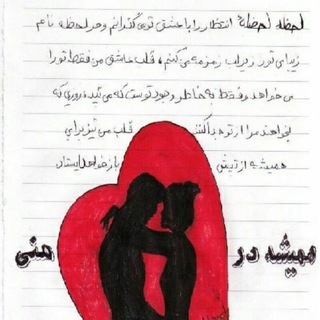 لحظه لحظهٔ انتظار را با عشق تو می گذرانم و هر لحظه نام
زیبای تو را زیر لب زمزمه می کنم، قلب عاشق من فقط تو را
می خواهد و فقط به خاطر وجود توست که می تپد، روزی که
بخواهند مرا از تو جدا کنند قلب من نیز برای
همیشه از تپش باز خواهد ایستاد
همیشه در منی